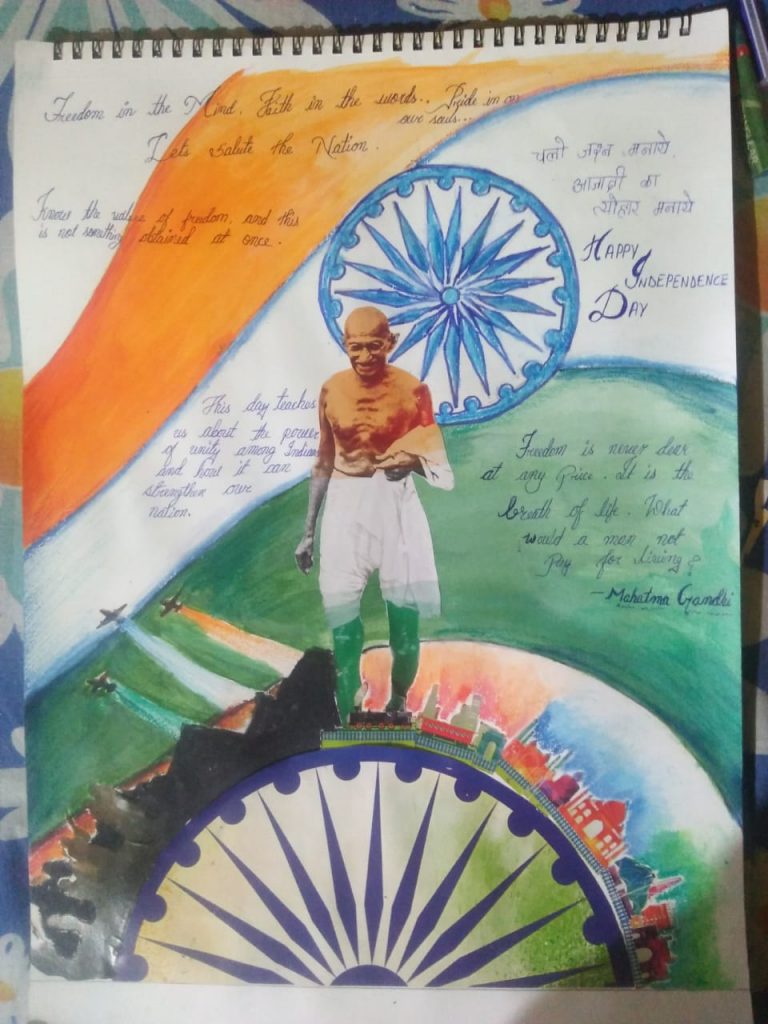 Freedom in the Mind, Faith in the words.. Pride in on
our souls...
Lets Salute the Nation.
चलो जश्न मनाये,
आजादी का
त्योहार मनाये
Know the value of freedom, and this
is not something obtained at once.
Happy
Independence
Day
This day teaches
us about the power
of unity among Indians
and how it can
strengthen our
nation.
Freedom is never dear
at any Price. It is the
breath of life. What
would a man not
Pay for living?
- Mahatma Gandhi